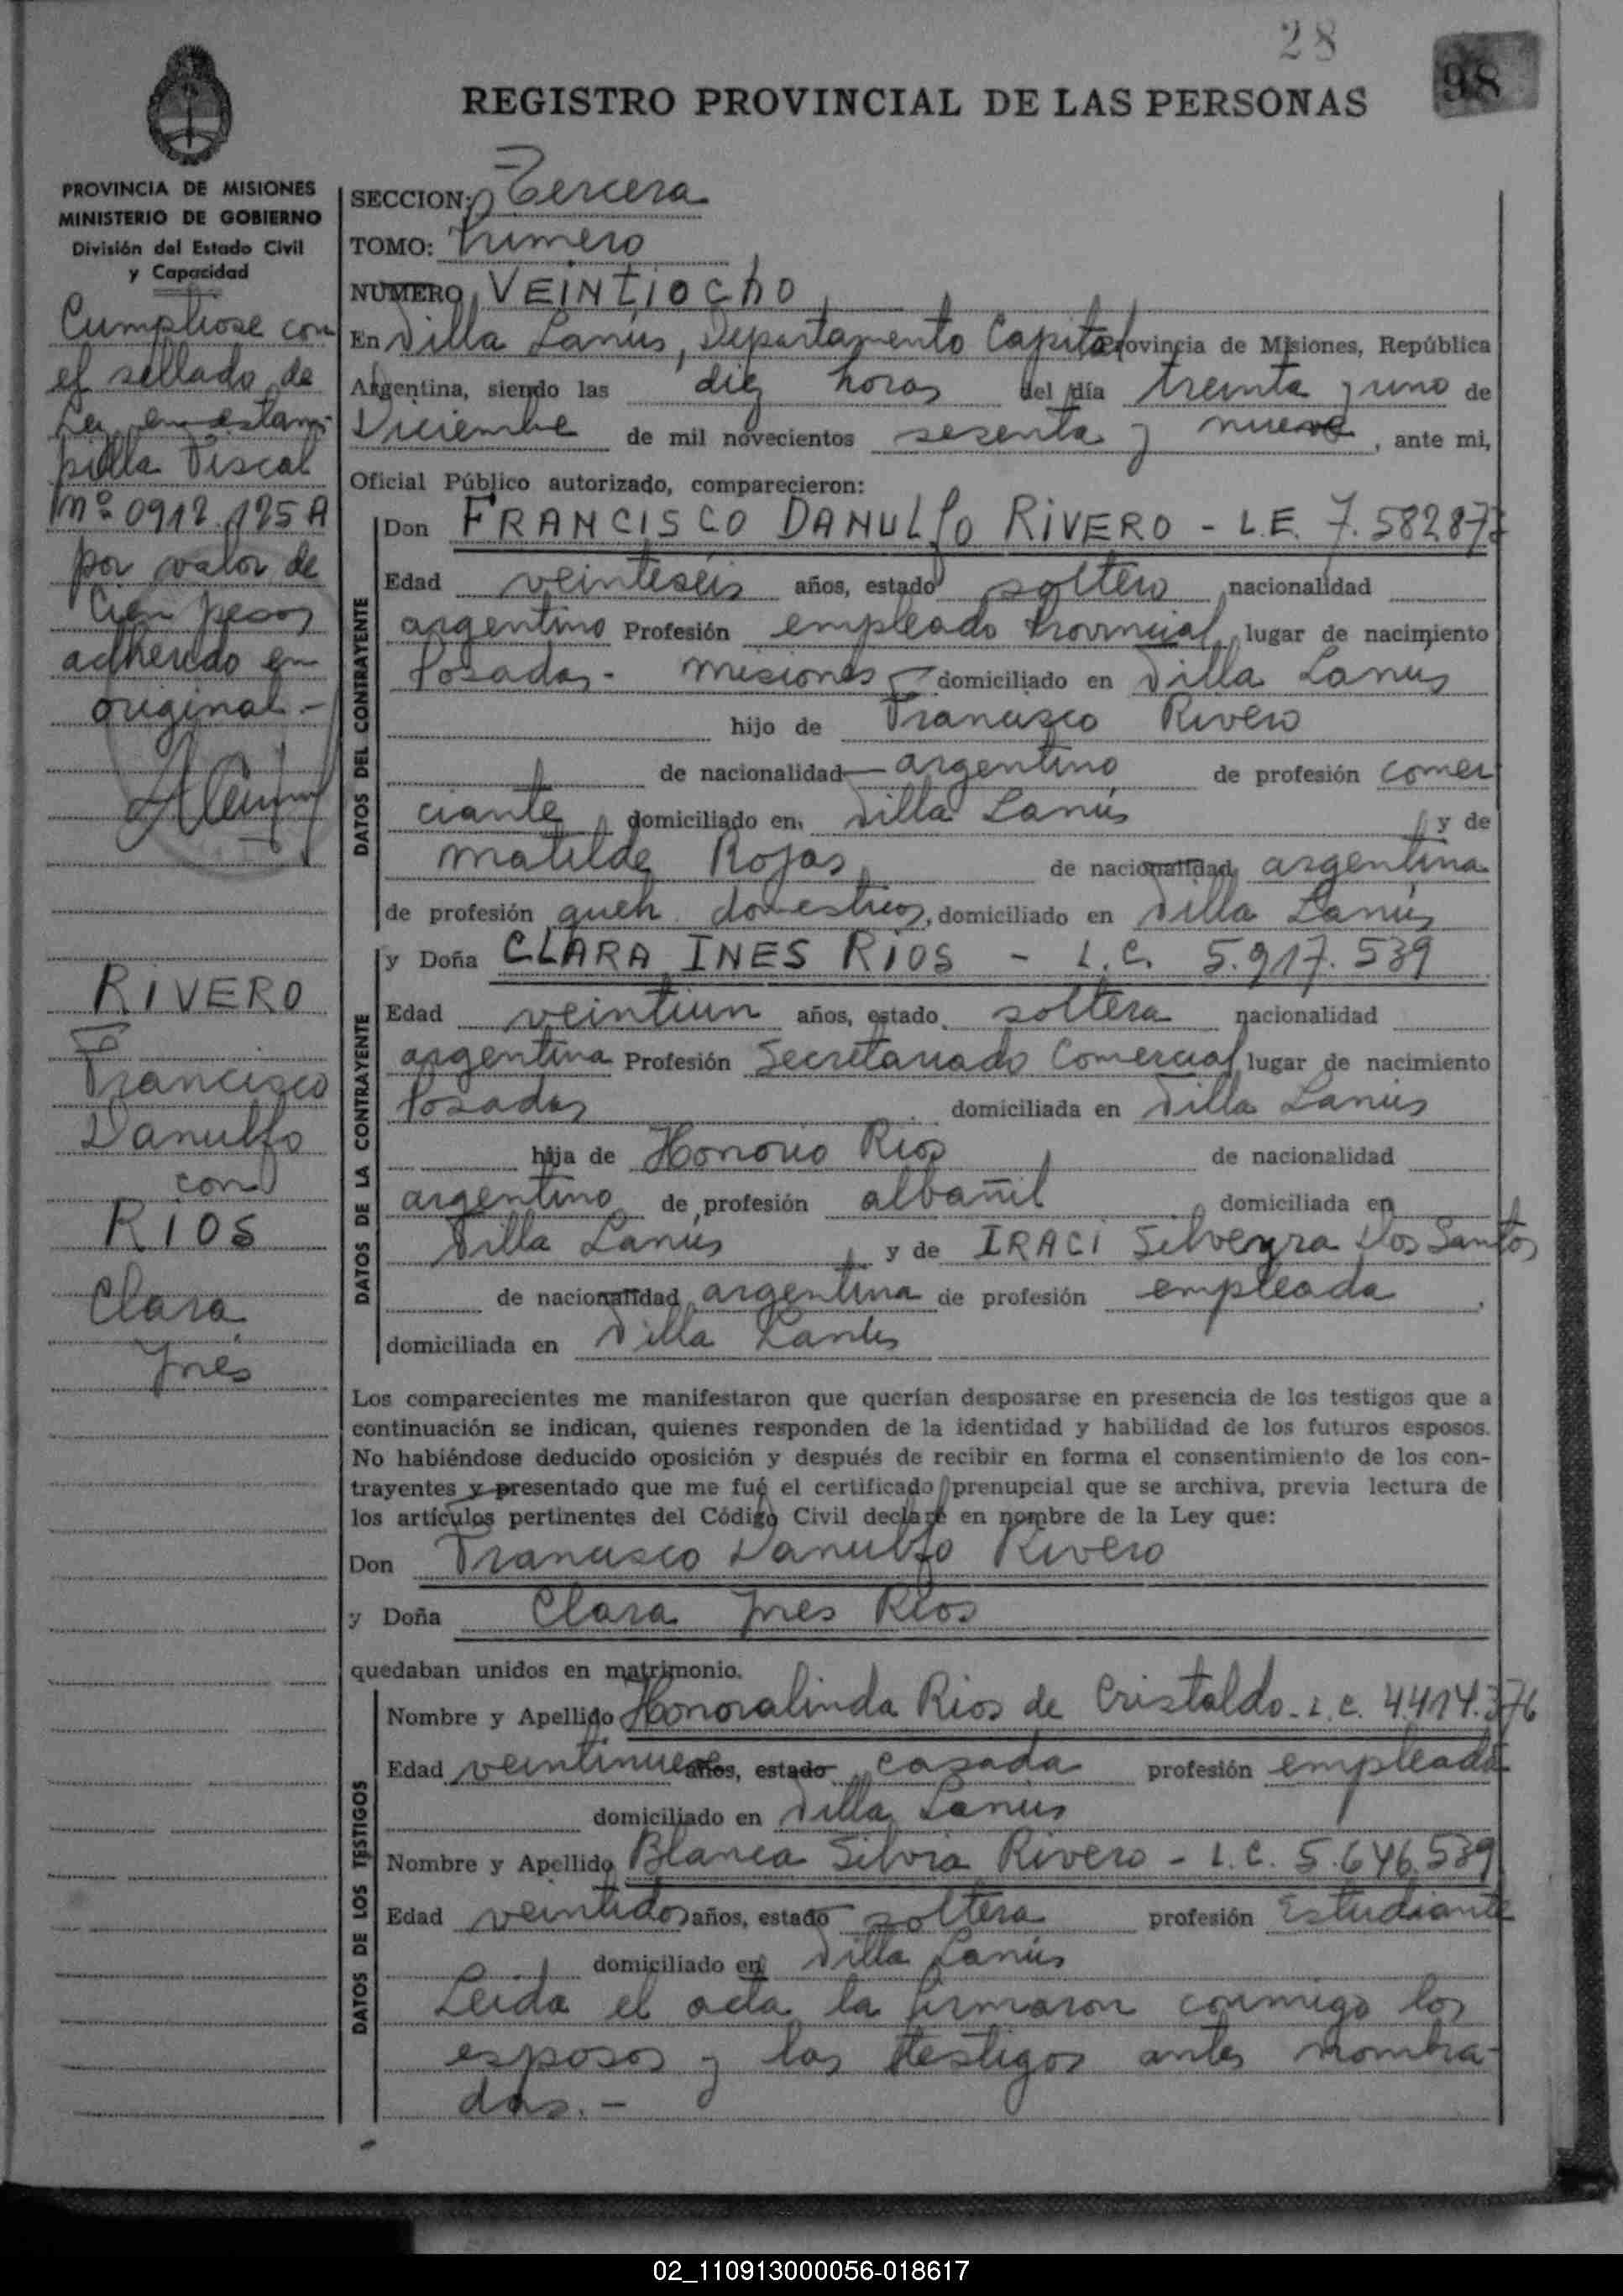 28
98
REGISTRO PROVINCIAL DE LAS PERSONAS
PROVINCIA DE MISIONES
MINISTERIO DE GOBIERNO
División del Estado Civil
y Capacidad
Cumpliose con
el sellado de
Ley en estam-
pilla Fiscal
Nº 0912.195 A
por valor de
Cien pesos
adherido en
original.-
RIVERO
Francisco
Danulfo
con
RIOS
Clara
Inés
SECCION: Tercera
TOMO: Primero
NUMERO VEINTIOCHO
En Villa Lanús, Departamento Capital Provincia de Misiones, República
Argentina, siendo las diez horas del día treinta y uno de
Diciembre de mil novecientos sesenta y nueve, ante mi,
Oficial Público autorizado, comparecieron:
DATOS DEL CONTRAYENTE
Don FRANCISCO DANULFO RIVERO - L.E. 7.582877
Edad veinteseis años, estado soltero nacionalidad
argentino Profesión empleado Provincial lugar de nacimiento
Posadas - Misiones domiciliado en Villa Lanus
hijo de Francisco Rivero
de nacionalidad argentino de profesión comer
ciante domiciliado en Villa Lanús y de
Matilde Rojas de nacionalidad argentina
de profesión queh. domesticos, domiciliado en Villa Lanús
DATOS DE LA CONTRAYENTE
y Doña CLARA INES RIOS - L.C. 5.917.539
Edad veintiun años, estado soltera nacionalidad
argentina Profesión Secretariado Comercial lugar de nacimiento
Posadas domiciliada en Villa Lanús
hija de Honorio Rios de nacionalidad
argentino de profesión albañil domiciliada en
Villa Lanús y de IRACI Silveyra Dos Santos
de nacionalidad argentina de profesión empleada
domiciliada en Villa Lanús
Los comparecientes me manifestaron que querían desposarse en presencia de los testigos que a
continuación se indican, quienes responden de la identidad y habilidad de los futuros esposos.
No habiéndose deducido oposición y después de recibir en forma el consentimiento de los con-
trayentes y presentado que me fué el certificado prenupcial que se archiva, previa lectura de
los artículos pertinentes del Código Civil declaré en nombre de la Ley que:
Don Francisco Danulfo Rivero
y Doña Clara Ines Rios
quedaban unidos en matrimonio.
DATOS DE LOS TESTIGOS
Nombre y Apellido Honoralinda Rios de Cristaldo - L.C. 4.414.376
Edad veintinueve años, estado casada profesión empleada
domiciliado en Villa Lanús
Nombre y Apellido Blanca Silvia Rivero - L.C. 5.646.589
Edad veintidos años, estado soltera profesión Estudiante
domiciliado en Villa Lanús
Leida el acta la firmaron conmigo los
esposos y los testigos antes nombra-
dos.-
02_110913000056-018617